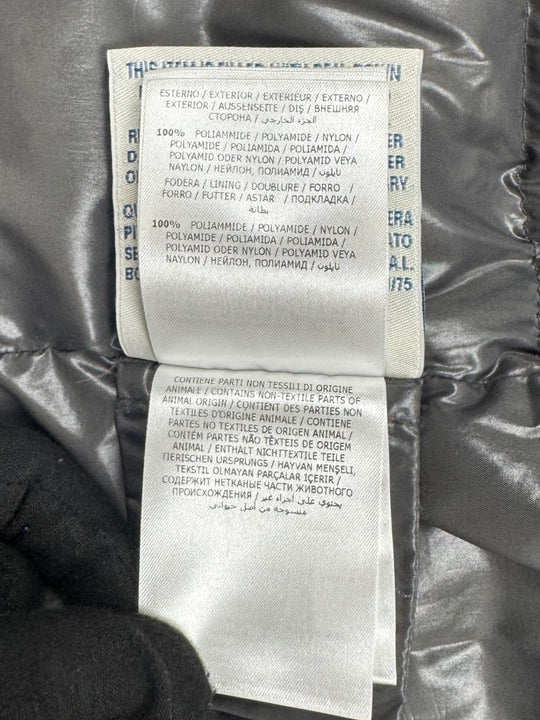 THIS ITEM IS FILLED WITH REAL DOWN
ESTERNO / EXTERIOR / EXTERIEUR / EXTERNO /
EXTERIOR / AUSSENSEITE / DIŞ / ВНЕШНЯЯ
СТОРОНА / الجزء الخارجي
100% POLIAMMIDE / POLYAMIDE / NYLON /
POLYAMIDE / POLIAMIDA / POLIAMIDA /
POLYAMID ODER NYLON / POLYAMID VEYA
NAYLON / НЕЙЛОН, ПОЛИАМИД / نايلون
FODERA / LINING / DOUBLURE / FORRO /
FORRO / FUTTER / ASTAR / ПОДКЛАДКА /
بطانة
100% POLIAMMIDE / POLYAMIDE / NYLON /
POLYAMIDE / POLIAMIDA / POLIAMIDA /
POLYAMID ODER NYLON / POLYAMID VEYA
NAYLON / НЕЙЛОН, ПОЛИАМИД / نايلون
ER
ER
RY
ERA
ATO
A.L.
/75
CONTIENE PARTI NON TESSILI DI ORIGINE
ANIMALE / CONTAINS NON-TEXTILE PARTS OF
ANIMAL ORIGIN / CONTIENT DES PARTIES NON
TEXTILES D'ORIGINE ANIMALE / CONTIENE
PARTES NO TEXTILES DE ORIGEN ANIMAL /
CONTÉM PARTES NÃO TÊXTEIS DE ORIGEM
ANIMAL / ENTHÄLT NICHTTEXTILE TEILE
TIERISCHEN URSPRUNGS / HAYVAN MENŞELİ,
TEKSTIL OLMAYAN PARÇALAR İÇERİR /
СОДЕРЖИТ НЕТКАНЫЕ ЧАСТИ ЖИВОТНОГО
ПРОИСХОЖДЕНИЯ / يحتوي على أجزاء غير
منسوجة من أصل حيواني